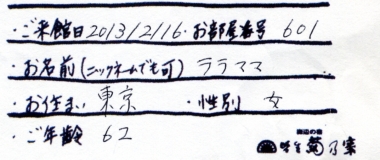 ・ご来館日2013/2/16・お部屋番号 601
・お名前(ニックネームでも可) ララママ
・お住まい 東京 ・性別 女
・ご年齢 62
海辺の宿
味王 菊乃家